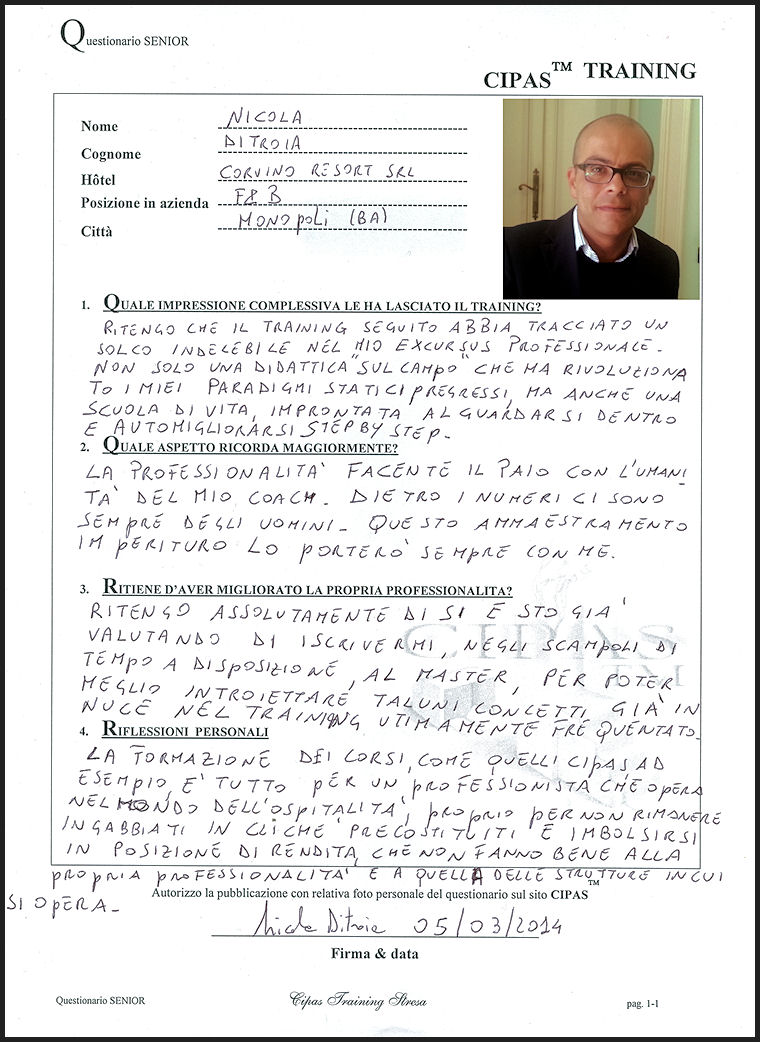 Questionario SENIOR
CIPAS™ TRAINING
Nome NICOLA
Cognome DITROIA
Hôtel CORVINO RESORT SRL
Posizione in azienda F&B
Città MONOPOLI (BA)
1. QUALE IMPRESSIONE COMPLESSIVA LE HA LASCIATO IL TRAINING?
RITENGO CHE IL TRAINING SEGUITO ABBIA TRACCIATO UN
SOLCO INDELEBILE NEL MIO EXCURSUS PROFESSIONALE.
NON SOLO UNA DIDATTICA "SUL CAMPO" CHE MA RIVOLUZIONA
TO I MIEI PARADIGMI STATICI PREGRESSI, MA ANCHE UNA
SCUOLA DI VITA, IMPRONTATA AL GUARDARSI DENTRO
E AUTOMIGLIORARSI STEP BY STEP.
2. QUALE ASPETTO RICORDA MAGGIORMENTE?
LA PROFESSIONALITA' FACENTE IL PAIO CON L'UMANI
TA' DEL MIO COACH. DIETRO I NUMERI CI SONO
SEMPRE DEGLI UOMINI. QUESTO AMMAESTRAMENTO
IMPERITURO LO PORTERO' SEMPRE CON ME.
3. RITIENE D'AVER MIGLIORATO LA PROPRIA PROFESSIONALITA?
RITENGO ASSOLUTAMENTE DI SI E STO GIA'
VALUTANDO DI ISCRIVERMI, NEGLI SCAMPOLI DI
TEMPO A DISPOSIZIONE, AL MASTER, PER POTER
MEGLIO INTROIETTARE TALUNI CONCETTI, GIA' IN
NUCE NEL TRAINING UTIMAMENTE FREQUENTATO.
4. RIFLESSIONI PERSONALI
LA FORMAZIONE DEI CORSI, COME QUELLI CIPAS AD
ESEMPIO, E' TUTTO PER UN PROFESSIONISTA CHE OPERA
NEL MONDO DELL'OSPITALITA', PROPRIO PER NON RIMANERE
INGABBIATI IN CLICHE' PRECOSTITUITI E IMBOLSIRSI
IN POSIZIONE DI RENDITA, CHE NON FANNO BENE ALLA
PROPRIA PROFESSIONALITA' E A QUELLA DELLE STRUTTURE IN CUI
SI OPERA.
Autorizzo la pubblicazione con relativa foto personale del questionario sul sito CIPAS™
Nicola Ditroia 05/03/2014
Firma & data
Questionario SENIOR
Cipas Training Stresa
pag. 1-1